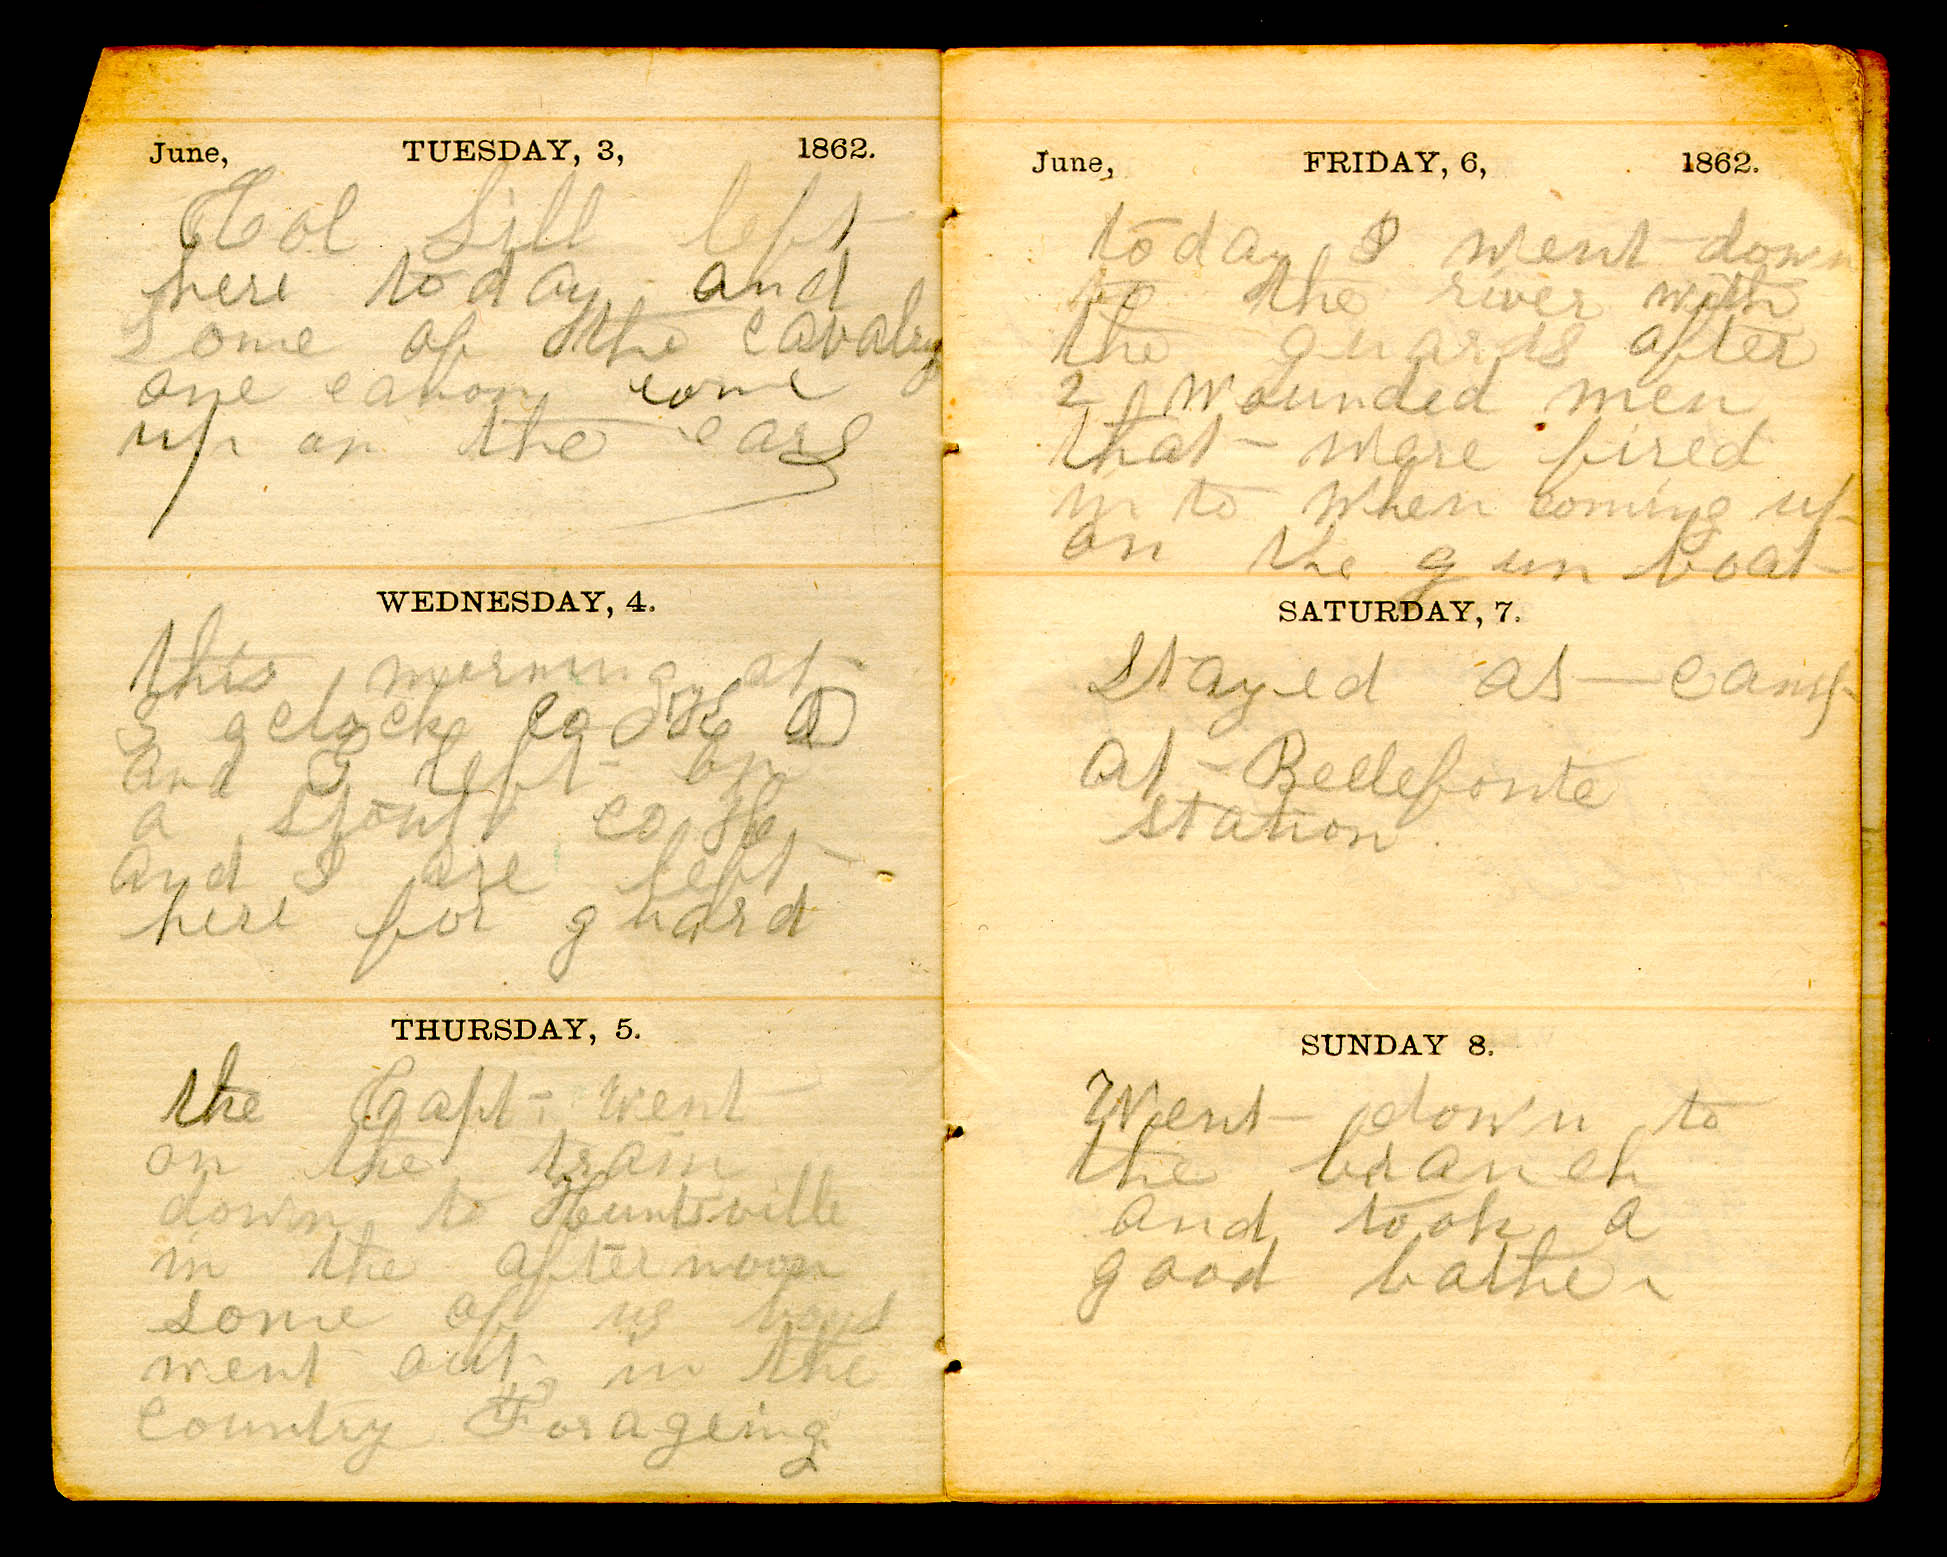 June, TUESDAY, 3, 1862.
Col Sill left
here today and
Some of the cavalry
one canon come
up on the cars
WEDNESDAY, 4.
this morning at
3 oclock Co H D
and I left on
a scout Co H
and I are left
here for guard
THURSDAY, 5.
the Capt went
on the train
down to Huntsville
in the afternoon
some of us boys
went out in the
country Forageing
June, FRIDAY, 6, 1862.
today I went down
to the river with
the guards after
2 wounded men
that were fired
in to when coming up
on the gun boat
SATURDAY, 7.
Stayed at camp
at Bellefonte
station
SUNDAY 8.
Went down to
the branch
and took a
good bathe